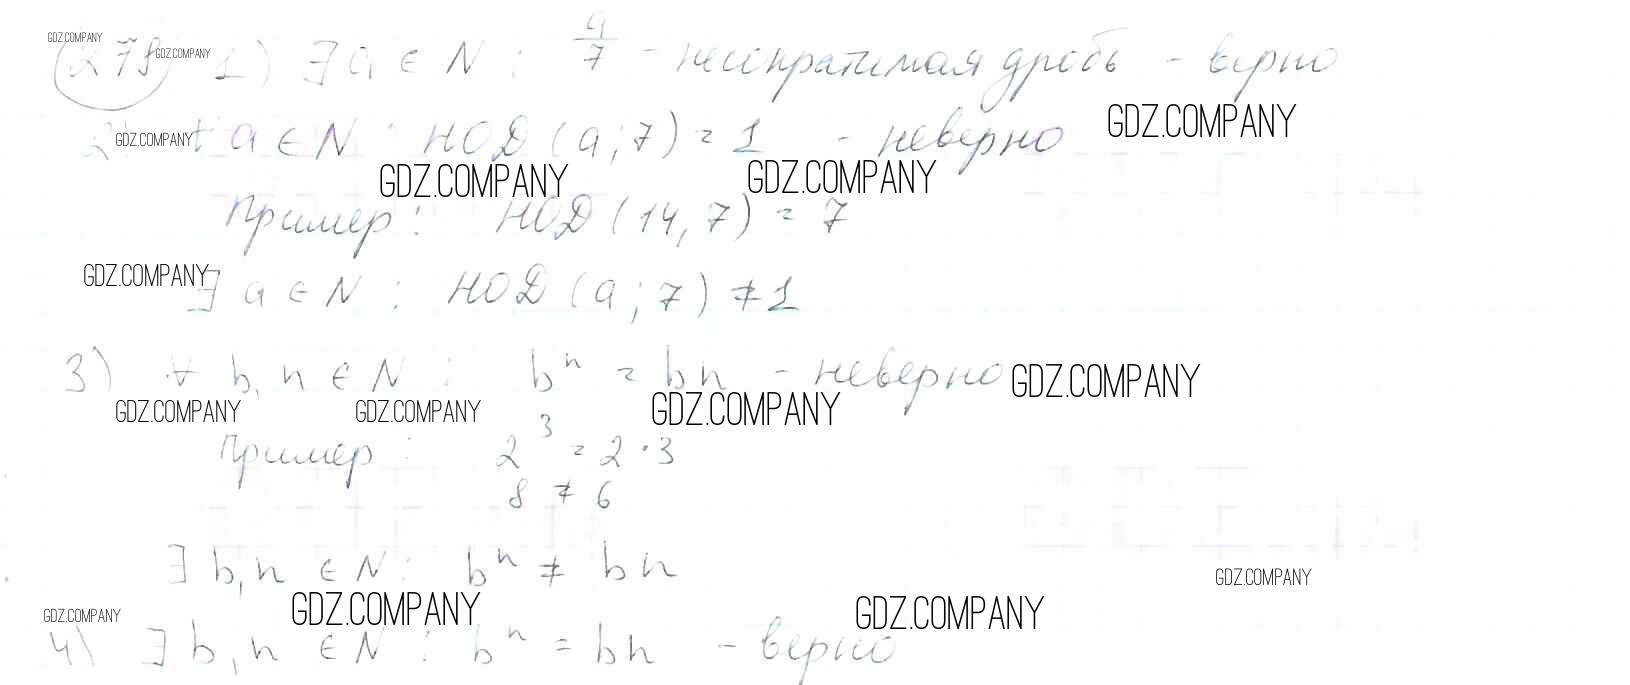 GDZ.COMPANY
278 GDZ.COMPANY 1) ∃ a ∈ N : a/7 - несократимая дробь - верно
2) GDZ.COMPANY ∀ a ∈ N : НОД (a; 7) = 1 - неверно GDZ.COMPANY
GDZ.COMPANY GDZ.COMPANY
Пример : НОД (14, 7) = 7
GDZ.COMPANY ∃ a ∈ N : НОД (a; 7) ≠ 1
3) ∀ b, n ∈ N : bⁿ = bn - неверно GDZ.COMPANY
GDZ.COMPANY GDZ.COMPANY GDZ.COMPANY
Пример : 2³ = 2 · 3
8 ≠ 6
∃ b, n ∈ N : bⁿ ≠ bn
GDZ.COMPANY
GDZ.COMPANY GDZ.COMPANY GDZ.COMPANY
4) ∃ b, n ∈ N : bⁿ = bn - верно